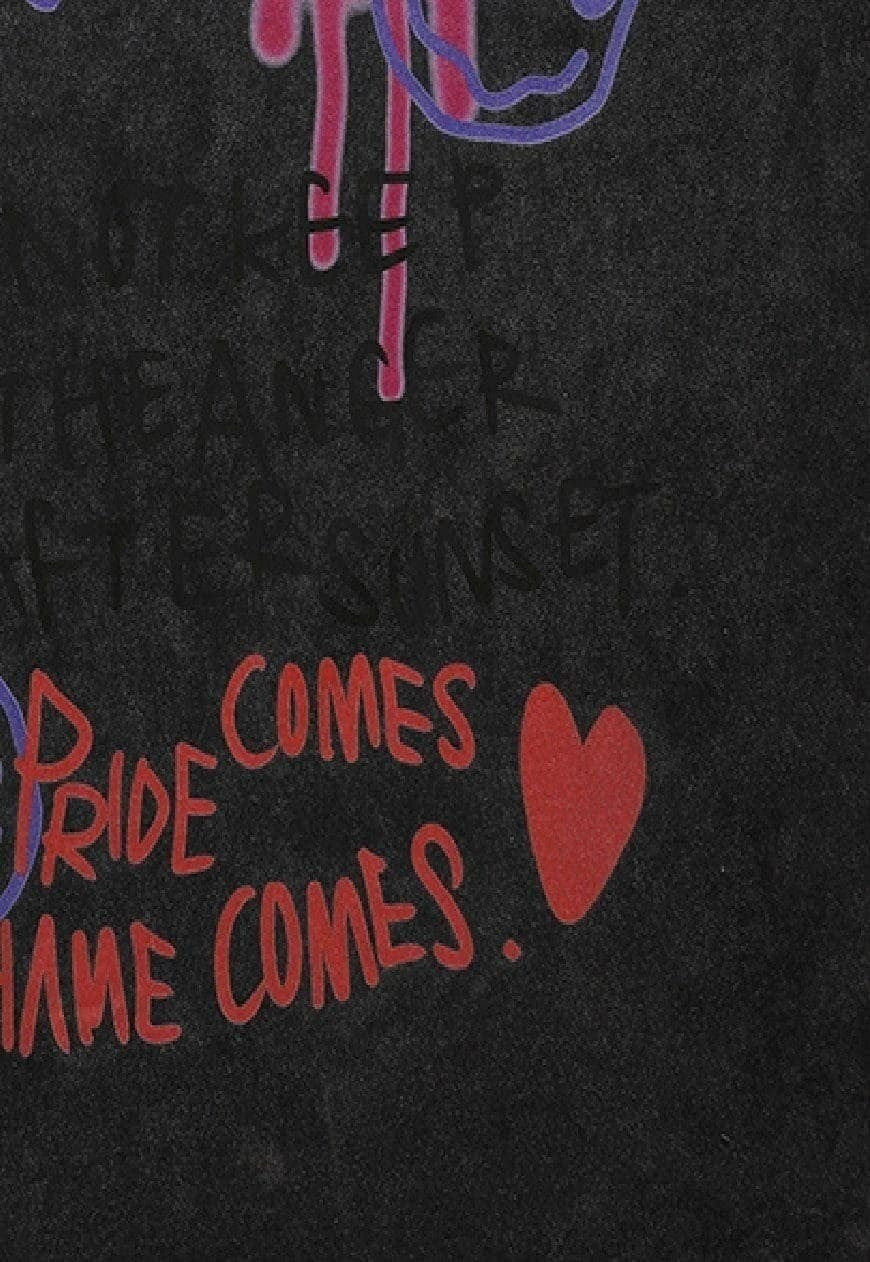 NOT KEEP
THE ANGER
AFTER SUNSET.
PRIDE COMES
HAME COMES.